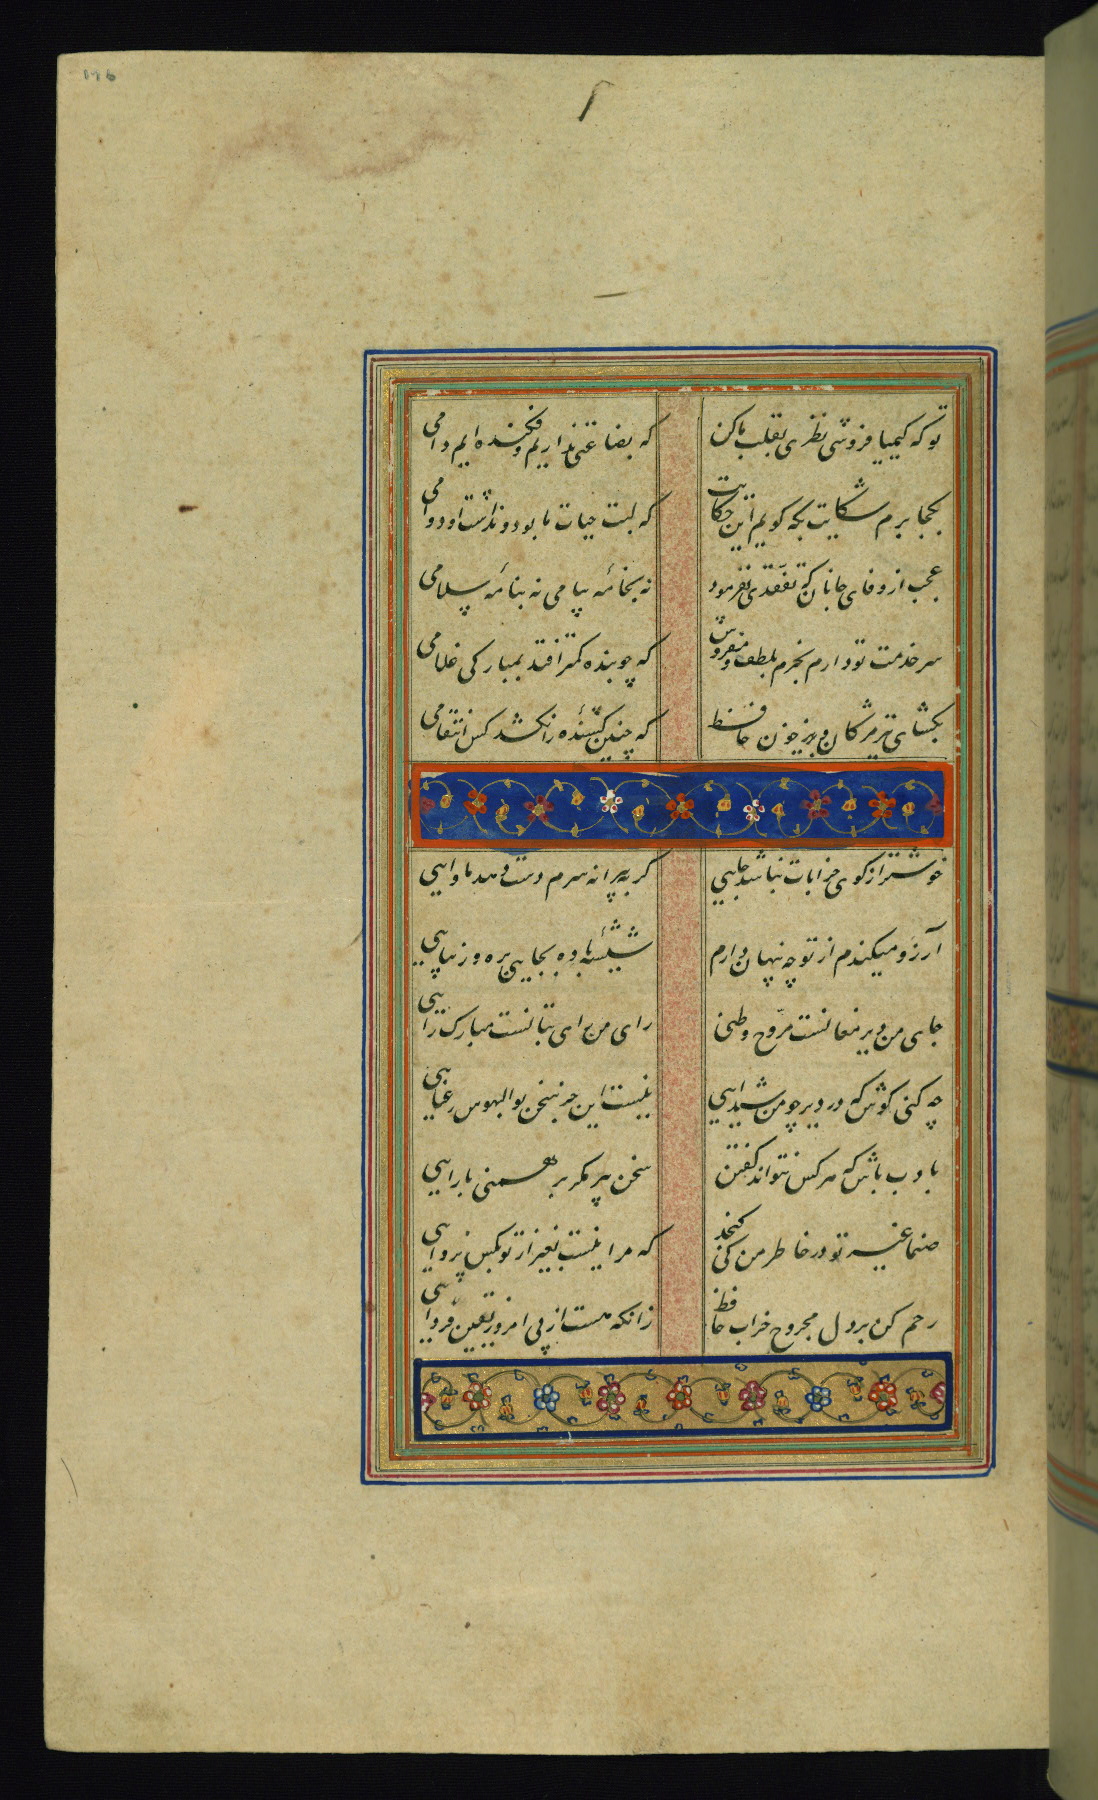 تو که کیمیا فروشی نظری بقلب ما کن که بضاعتی نداریم و فکنده ایم دامی
بکجا برم شکایت بکه گویم این حکایت که لبت حیات ما بود و نداشت او دوامی
عجب از وفای جانان که تفقدی نفرمود نه بخامه پیامی نه بنامه سلامی
سر خدمت تو دارم بخرم بلطف و مفروش که چو بنده کمتر افتد بمبارکی غلامی
بکشای تیر مژگان و بریز خون حافظ که چنین کشنده را نکشد کس انتقامی
خوشتر از کوی خرابات نباشد جایی گر به پیرانه سرم دست دهد ماوایی
آرزو میکندم از تو چه پنهان دارم شیشه باده بجایی بده و زیبایی
جای من دیر مغانست مروح وطنی رای من رای بتانست مبارک رایی
چه کنی گوش که در دیر چو من شیدایی نیست این جز سخن بوالهوس رعنایی
بادب باش که هرکس نتواند گفتن سخن پیر مگر برهمنی یا رایی
صنما غیر تو در خاطر من کی گنجد که مرا نیست بغیر از تو بکس پروایی
رحم کن بر دل مجروح خراب حافظ زانکه هست از پی امروز یقین فردایی